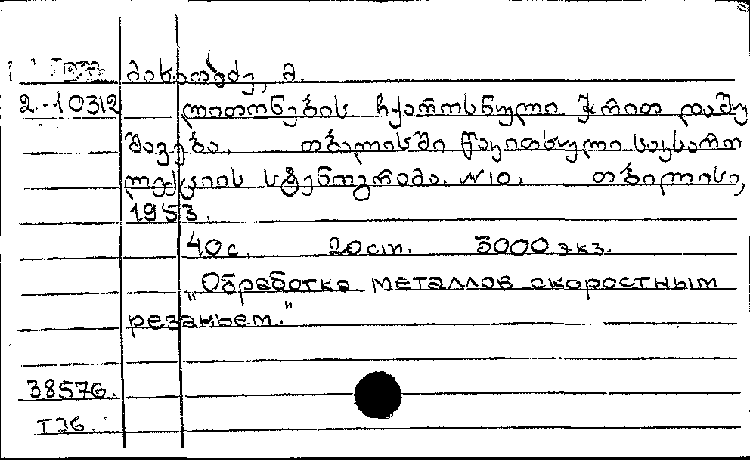 მიხოთაძე, მ.
2.-10312 ლითონების ჩქაროსნული ჭრით დამუ
შავება. თბილისში წაკითხული საჯარო
ლექციის სტენოგრამა. №10. თბილისი,
1953.
40с. 20ст. 5000 экз.
„Обработка металлов скоростным
резаньем."
38576.